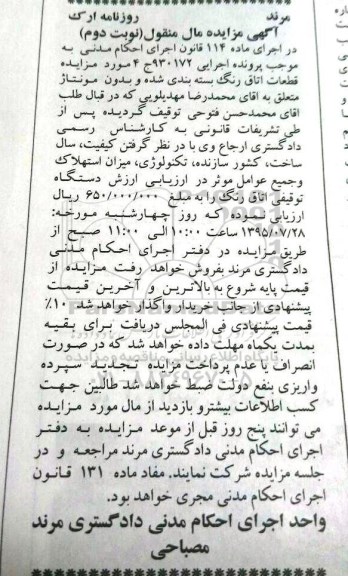 مرند روزنامه ارک
آگهی مزایده مال منقول(نوبت دوم)
در اجرای ماده ۱۱۴ قانون اجرای احکام مدنی به
موجب پرونده اجرایی ۹۳۰۱۷۲ج ۴مورد مزایده
قطعات اتاق رنگ بسته بندی شده و بدون مونتاژ
متعلق به اقای محمدرضا مهدیلویی که در قبال طلب
اقای محمدحسن فتوحی توقیف گردیده پس از
طی تشریفات قانونی به کارشناس رسمی
دادگستری ارجاع وی با در نظر گرفتن کیفیت، سال
ساخت، کشور سازنده، تکنولوژی، میزان استهلاک
وجمیع عوامل موثر در ارزیابی ارزش دستگاه
توقیفی اتاق رنگ را به مبلغ ۶۵۰/۰۰۰/۰۰۰ ریال
ارزیابی نموده که روز چهارشنبه مورخه:
۱۳۹۵/۰۷/۲۸ ساعت ۱۰:۰۰ الی ۱۱:۰۰ صبح از
طریق مزایده در دفتر اجرای احکام مدنی
دادگستری مرند بفروش خواهد رفت مزایده از
قیمت پایه شروع به بالاترین و آخرین قیمت
پیشنهادی از جانب خریدار واگذار خواهد شد ۱۰٪
قیمت پیشنهادی فی المجلس دریافت برای بقیه
بمدت یکماه مهلت داده خواهد شد که در صورت
انصراف یا عدم پرداخت مزایده تجدید سپرده
واریزی بنفع دولت ضبط خواهد شد طالبین جهت
کسب اطلاعات بیشترو بازدید از مال مورد مزایده
می توانند پنج روز قبل از موعد مزایده به دفتر
اجرای احکام مدنی دادگستری مرند مراجعه و در
جلسه مزایده شرکت نمایند. مفاد ماده ۱۳۱ قانون
اجرای احکام مدنی مجری خواهد بود.
واحد اجرای احکام مدنی دادگستری مرند
مصباحی